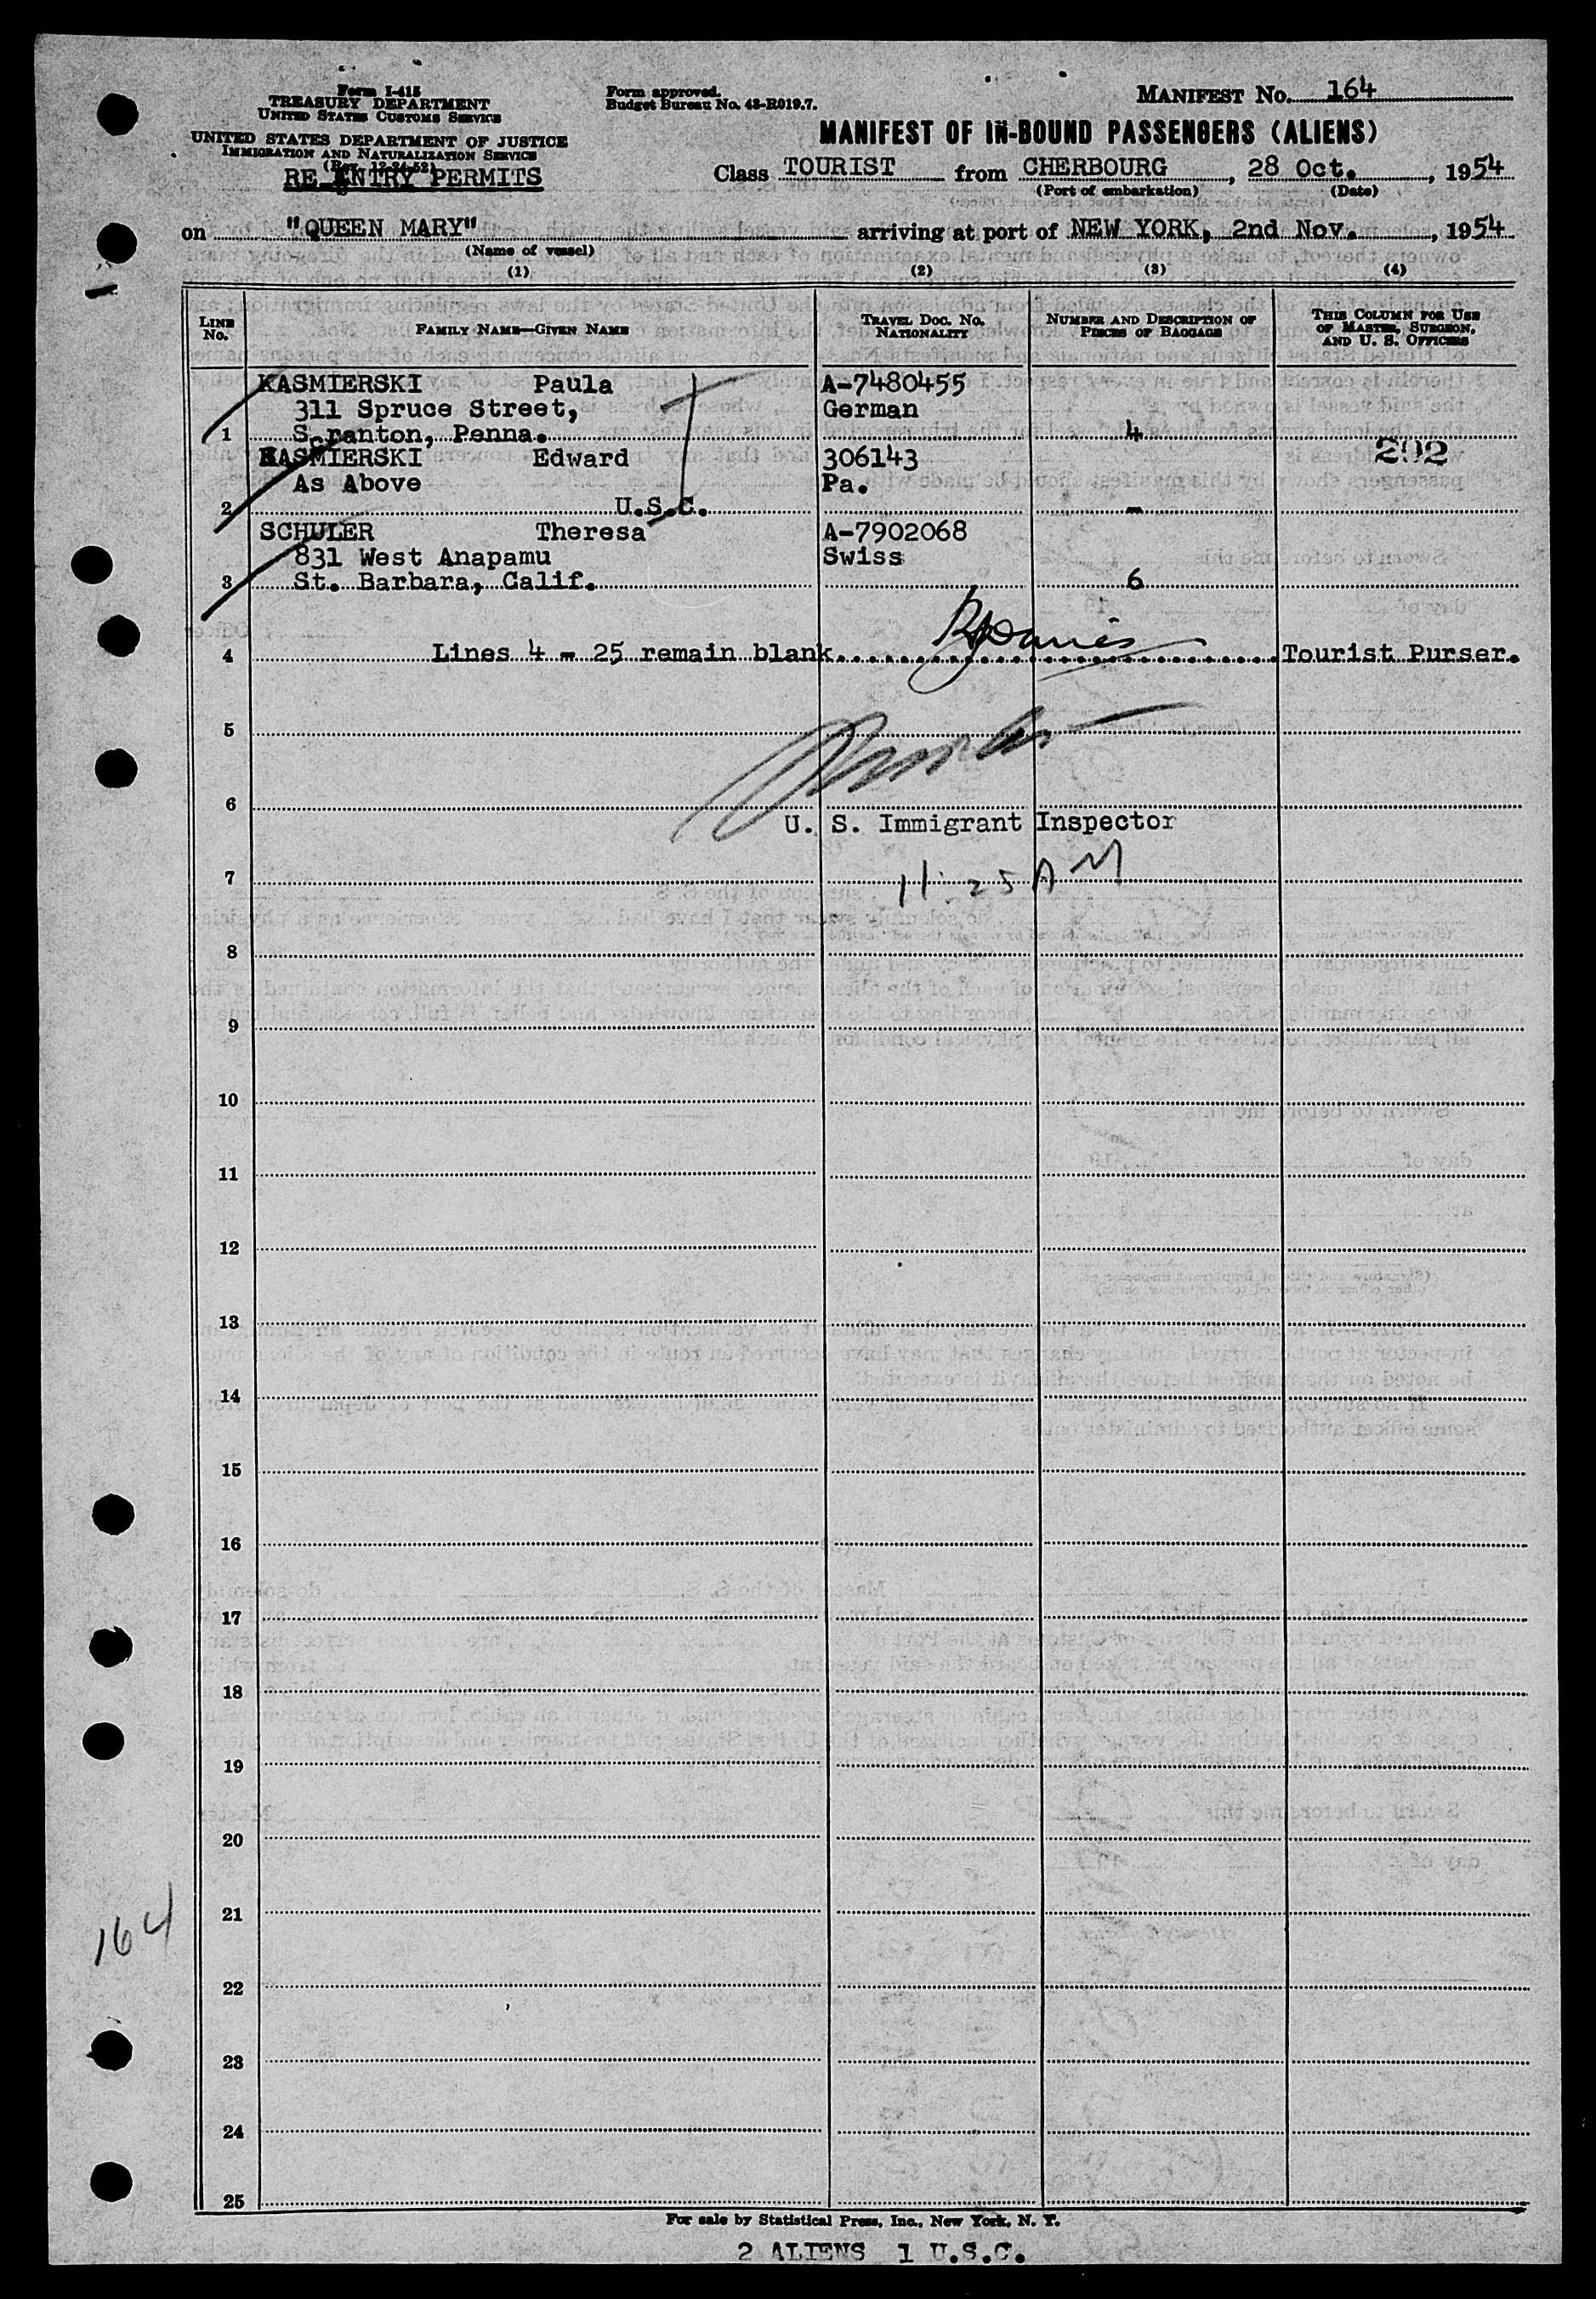 Form I-415
TREASURY DEPARTMENT
UNITED STATES CUSTOMS SERVICE
UNITED STATES DEPARTMENT OF JUSTICE
IMMIGRATION AND NATURALIZATION SERVICE
(Rev. 12-24-52)
RE ENTRY PERMITS
Form approved.
Budget Bureau No. 43-R019.7.
MANIFEST No. 164
MANIFEST OF IN-BOUND PASSENGERS (ALIENS)
Class TOURIST from CHERBOURG, 28 Oct., 1954
(Port of embarkation) (Date)
on "QUEEN MARY" arriving at port of NEW YORK, 2nd Nov., 1954
(Name of vessel)
(1) (2) (3) (4)
LINE No. FAMILY NAME—GIVEN NAME TRAVEL DOC. NO. NATIONALITY NUMBER AND DESCRIPTION OF PIECES OF BAGGAGE THIS COLUMN FOR USE OF MASTER, SURGEON, AND U. S. OFFICERS
KASMIERSKI Paula A-7480455
311 Spruce Street, German
1 Scranton, Penna. 4
KASMIERSKI Edward 306143 292
As Above Pa.
2 U.S.C. -
SCHULER Theresa A-7902068
831 West Anapamu Swiss
3 St. Barbara, Calif. 6
4 Lines 4 - 25 remain blank. Tourist Purser.
5
6
U. S. Immigrant Inspector
7 11:25 AM
8
9
10
11
12
13
14
15
16
17
18
19
20
21
164
22
23
24
25
For sale by Statistical Press, Inc., New York, N. Y.
2 ALIENS 1 U.S.C.